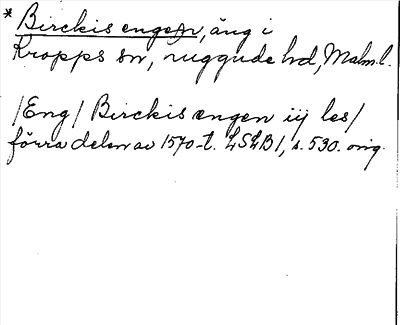 * Birckis engen, äng i
Kropps sn, Luggude hd, Malm. l.
/Eng/ Birckis engen iij les/
förra delen av 1570-t. LSLB 1, s. 530. orig.